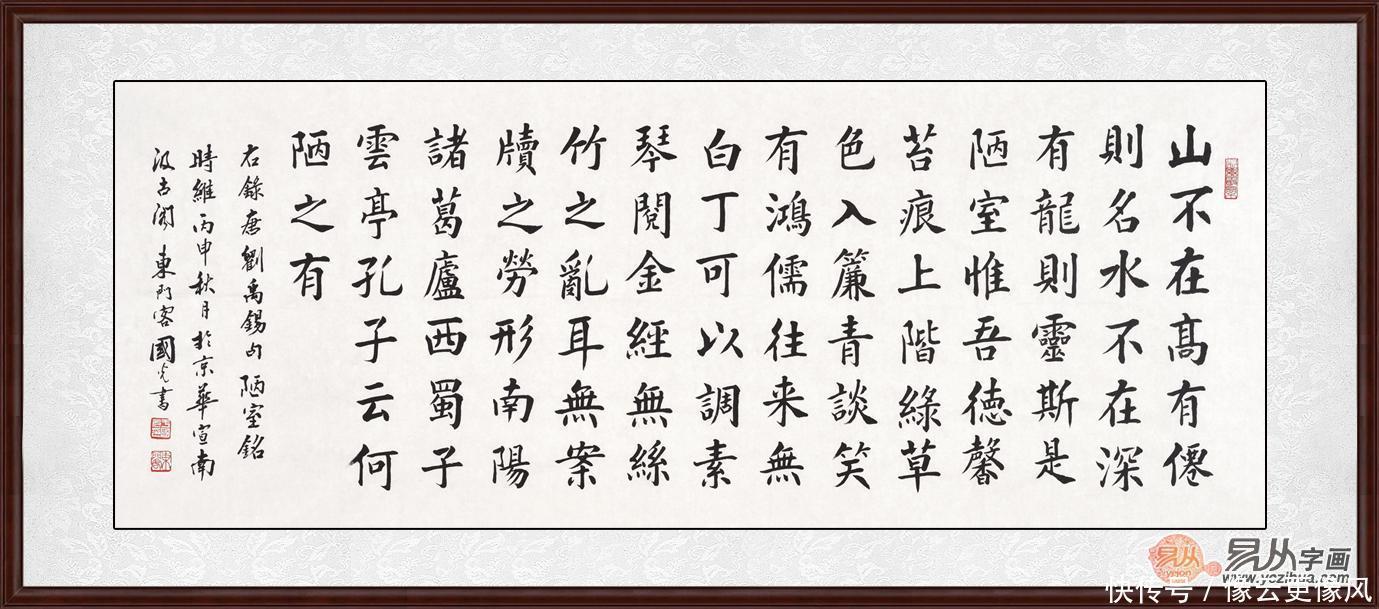 山不在高有僊
則名水不在深
有龍則靈斯是
陋室惟吾德馨
苔痕上階綠草
色入簾青談笑
有鴻儒往来無
白丁可以調素
琴閱金經無絲
竹之亂耳無案
牘之勞形南陽
諸葛廬西蜀子
雲亭孔子云何
陋之有
右錄唐劉禹錫句陋室銘
時維丙申秋月於京華宣南
汲古閣東門客國光書
易从
易从字画
www.yczihua.com
快传号 / 像云更像风